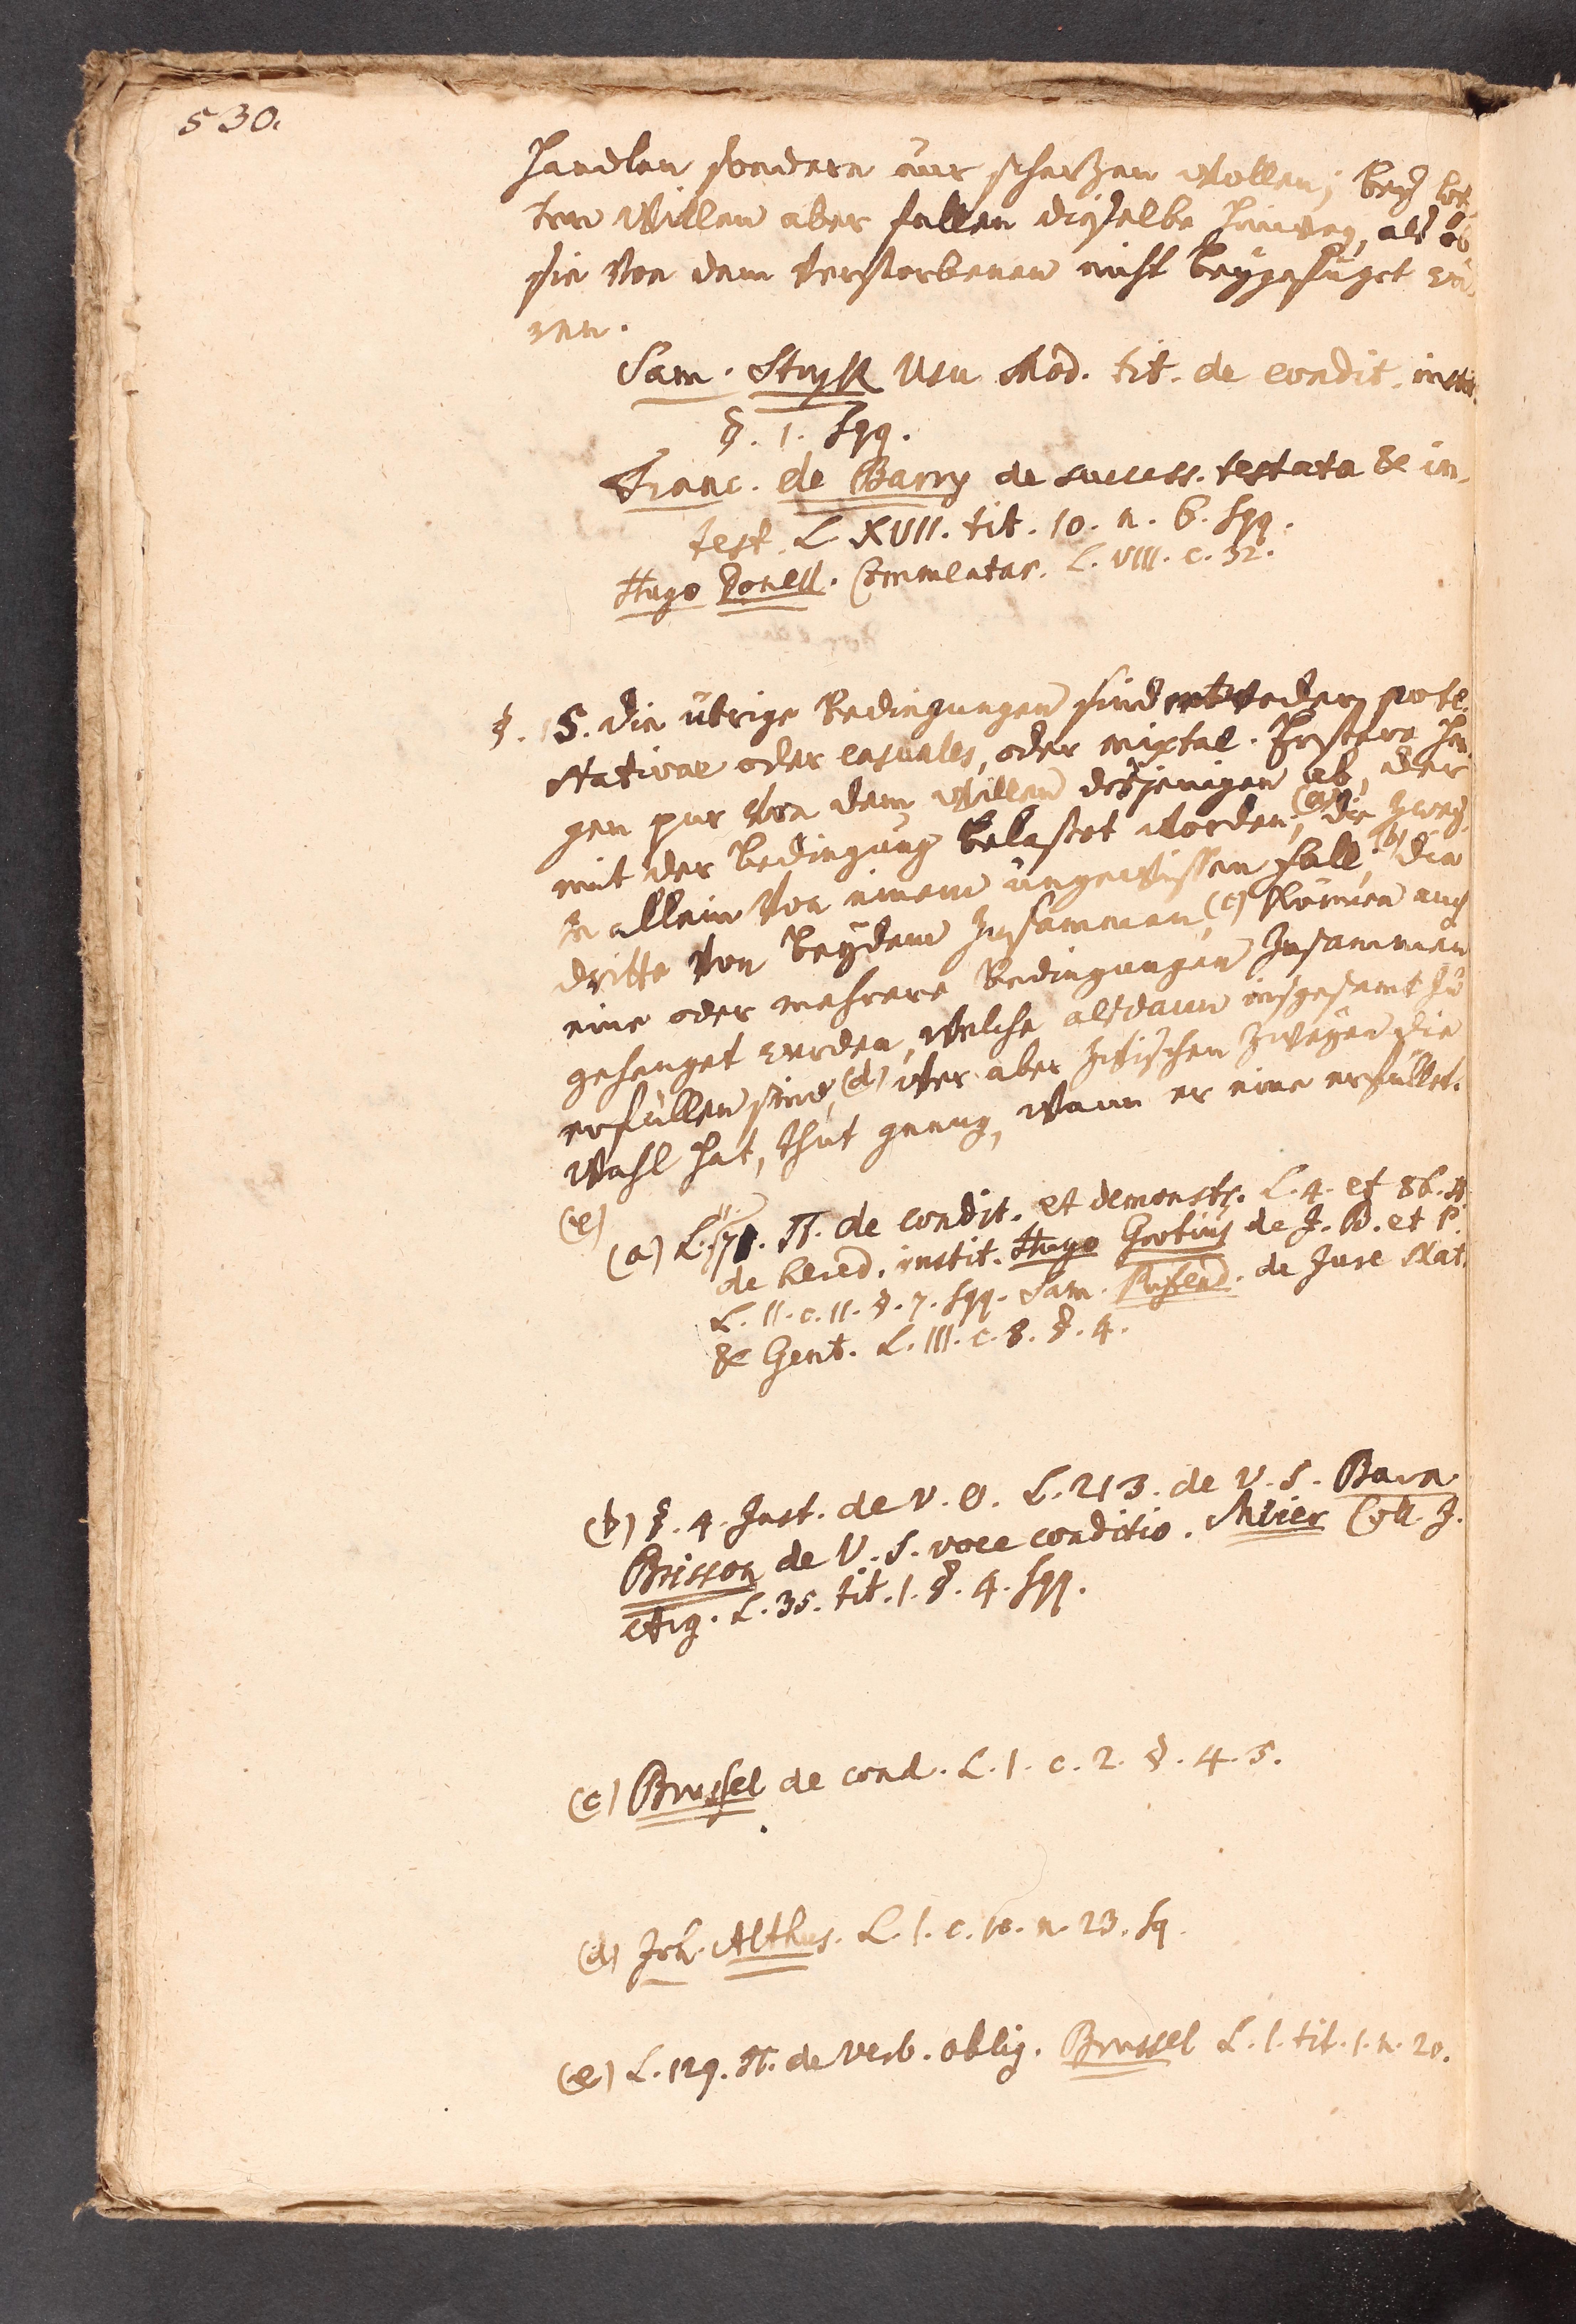 530.
handlen sondern nur schertzen wollen; bey letz-
tern willen aber fallen dieselbe hinweg, als ob
sie von dem verstorbenen nicht beygefüget wä-
ren.
Sam. Stryk Usu Mod. tit. de condit. instit.
§. 1. sqq.
Franc. de Barry de success. testata & in-
test. L. XVII. tit. 10. n. 6. sqq.
Hugo Donell. Commentar. L. VIII. c. 32.
§. 5. die übrige Bedingungen sind entweder pote-
stativae oder casuales, oder mixtae. Erstere han-
gen pur von dem willen desjenigen ab, der
mit der Bedingung belastet worden; (a) die zwey-
te allein von einem ungewissen fall; (b) die
dritte von beydem zusammen, (c) können auch
eine oder mehrere Bedingungen zusammen
gehenget werden, welche alsdann insgesamt zu
erfüllen sind, (d) wer aber zwischen zweyen die
wahl hat, thut genug, wann er eine erfüllet.
(e)
(a) L. 11. π. de condit. et demonstr. L. 4. et 86. π.
de hered. instit. Hugo Grotius de J. B. et P.
L. II. c. 11. §. 7. sqq. Sam. Pufend. de Jure Nat.
& Gent. L. III. c. 8. §. 4.
(b) §. 4. Inst. de V. O. L. 213. de V. S. Barn.
Brisson de V. S. voce conditio. Meier Coll. J.
Arg. L. 35. tit. 1. §. 4. sqq.
(c) Brussel de cond. L. 1. c. 2. §. 4. 5.
(d) Joh. Althus. L. 1. c. 10. n. 23. sq.
(e) L. 129. π. de verb. oblig. Brussel L. 1. tit. 1. n. 20.